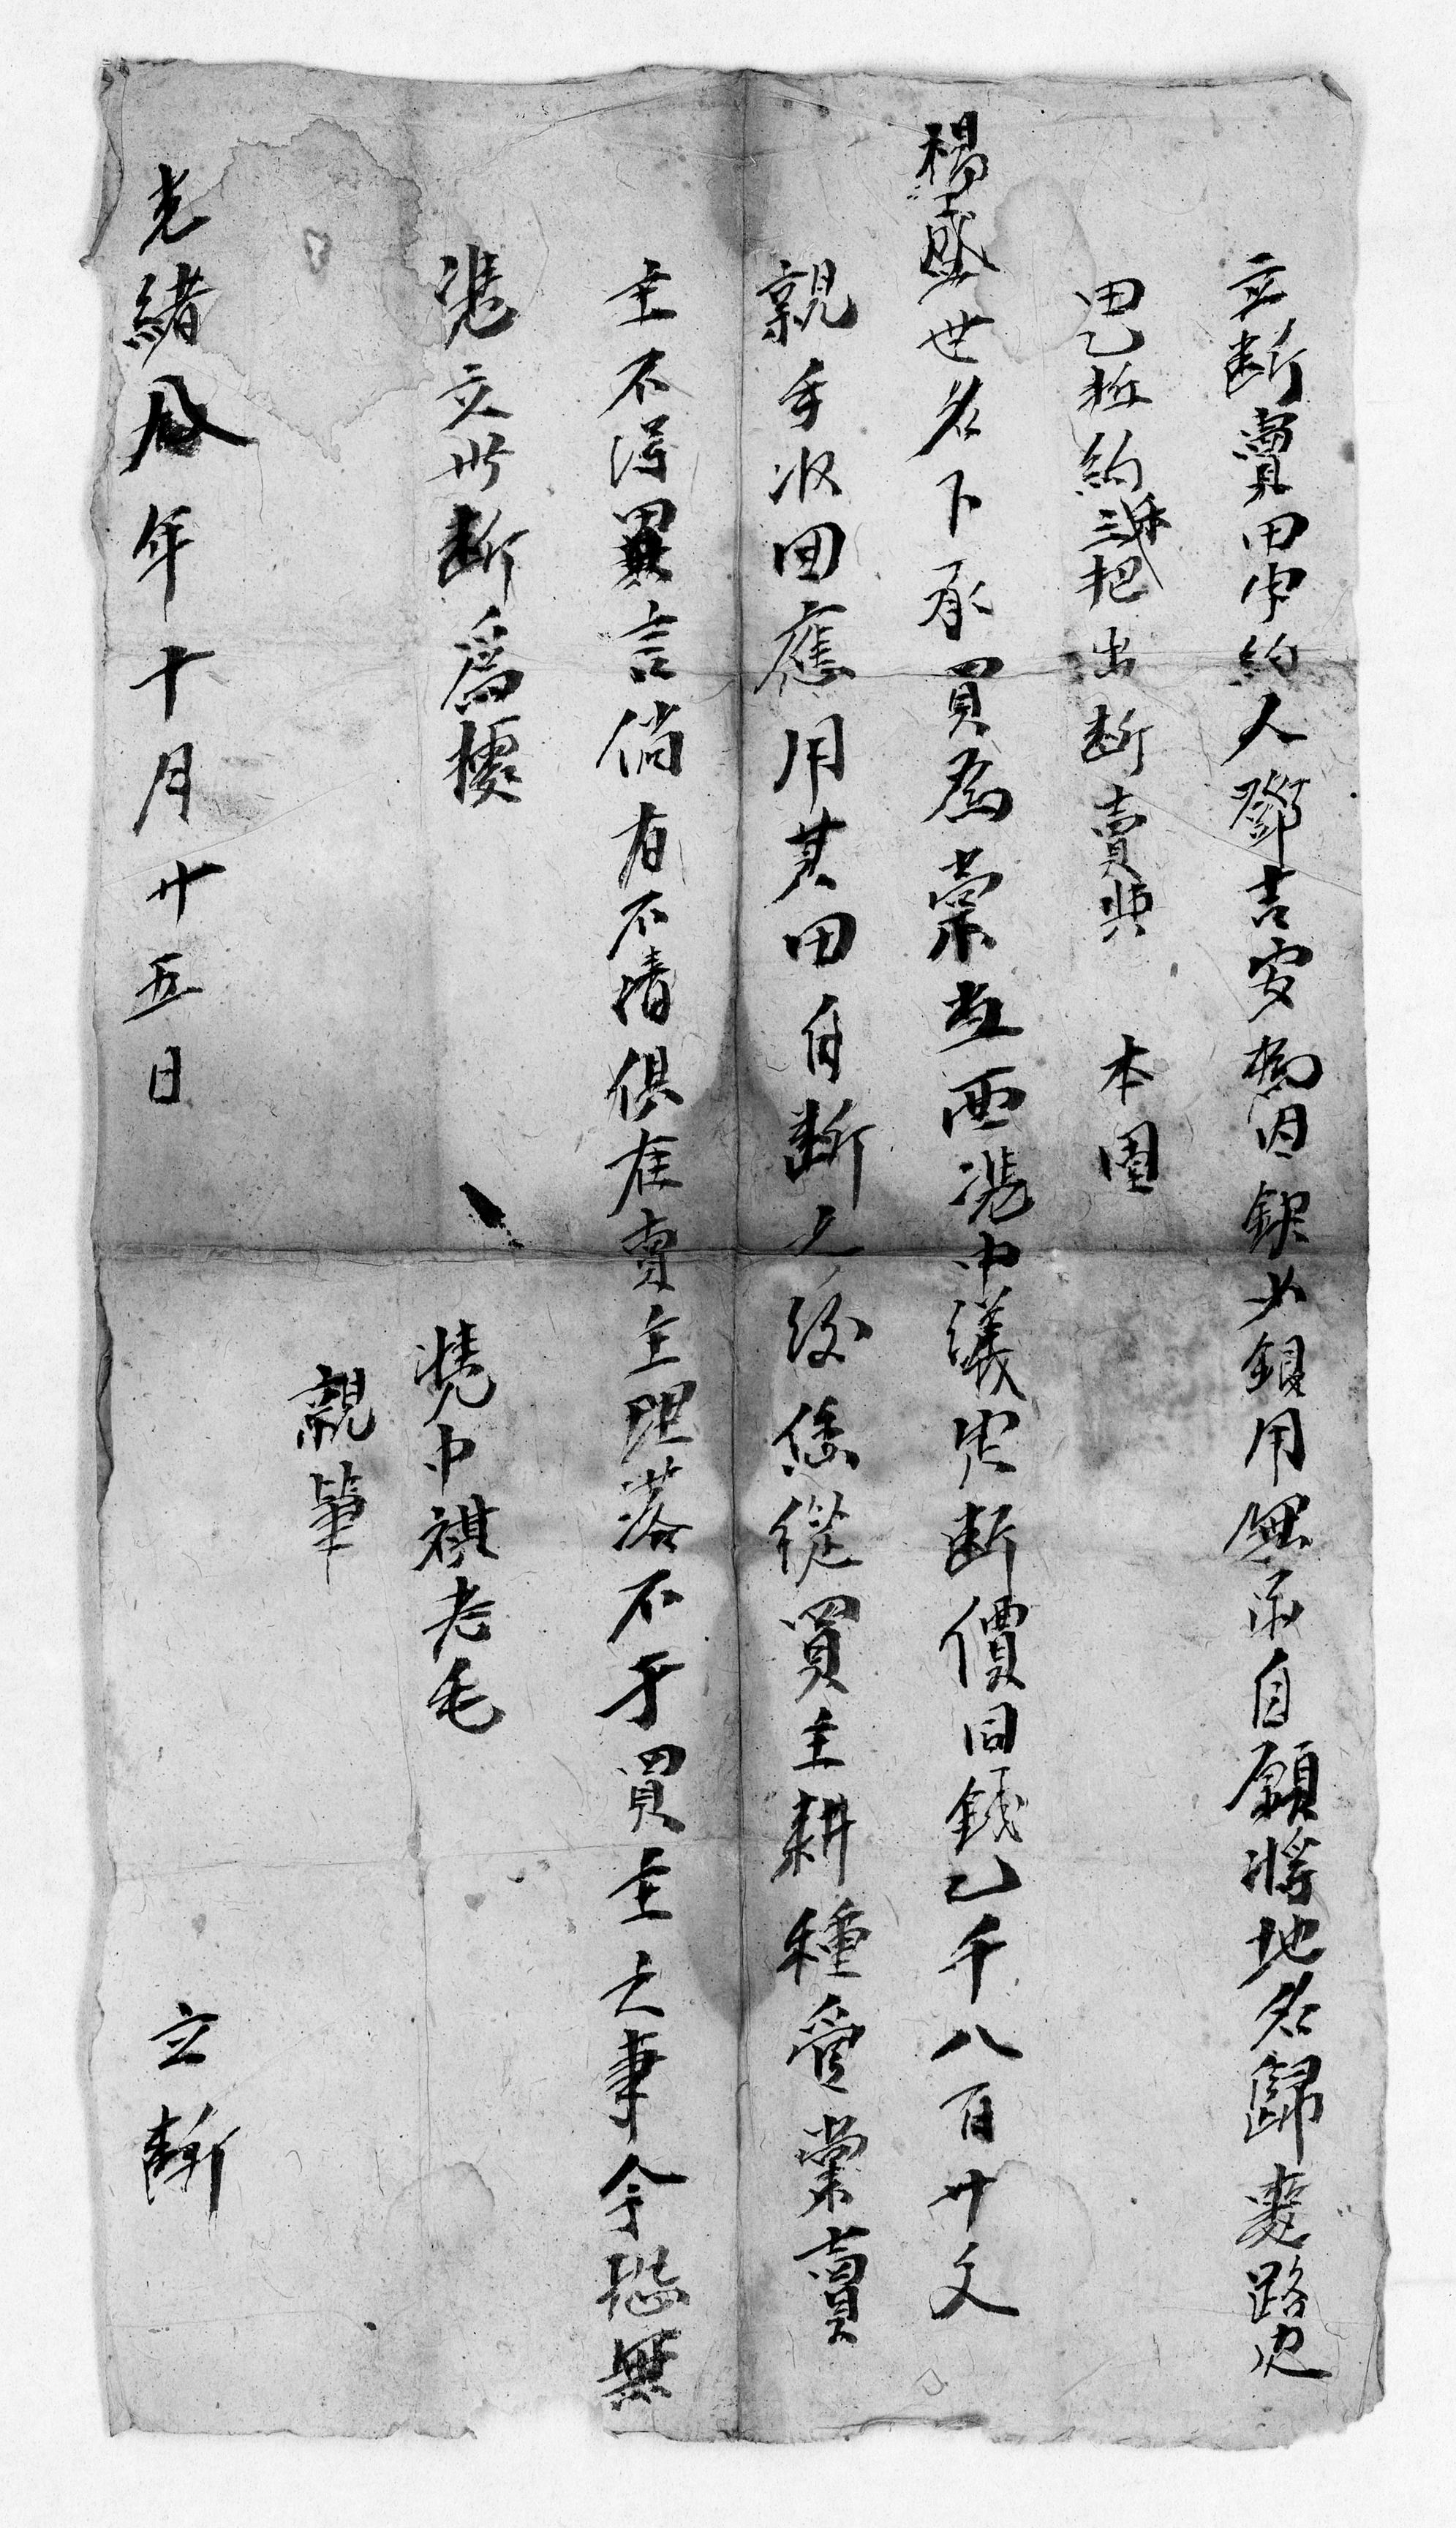 立斷賣田字約人鄧吉安橋因缺少銀用無承自願將地名歸婁路边
田乙坵約把出斷賣與 本團
楊盛世名下承買為業当面憑中議定斷價同錢乙千八百廿文
親手收回應用其田自斷之後任從買主耕種管業賣
主不得異言倘有不清俱在賣主理落不干買主之事今恐無
憑立此斷為據
憑中祺老毛
親筆
光緒八年十月廿五日 立斷